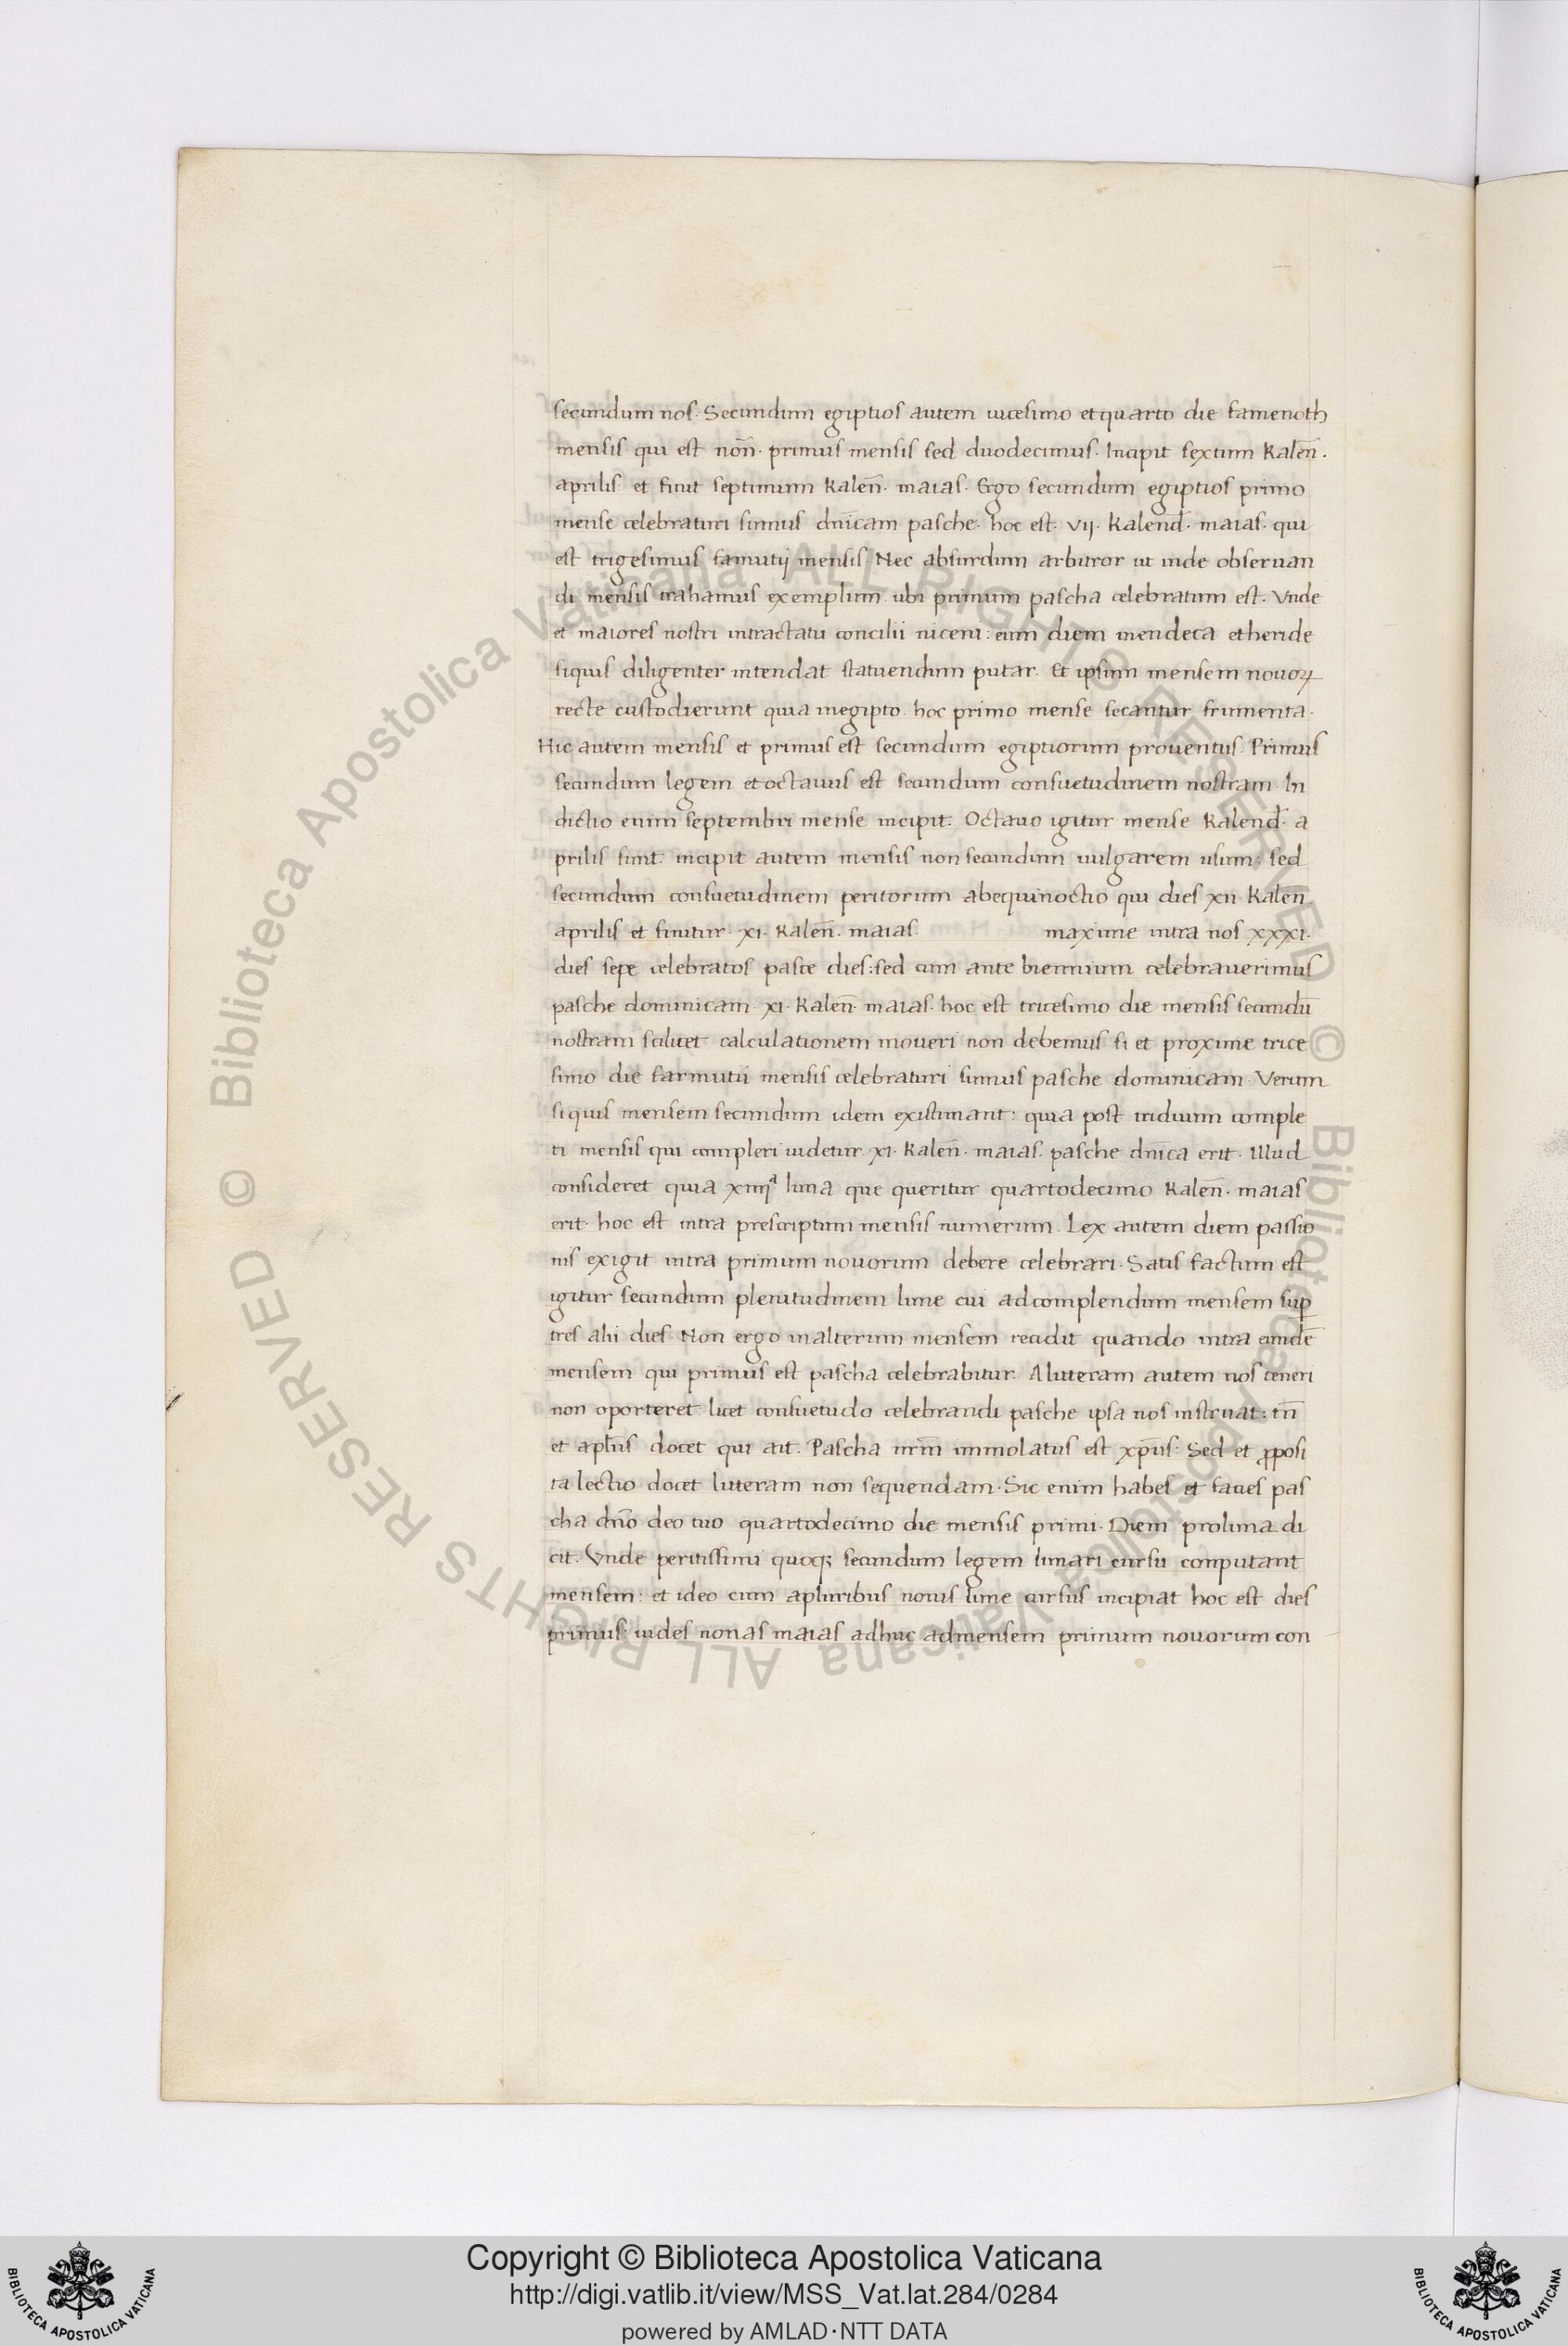 secundum nos. Secundum egiptios autem uicesimo et quarto die famenoth
mensis qui est nōn. primus mensis sed duodecimus. Incipit sextum Kalen̄.
aprilis. et finit septimum Kalen̄. maias. Ergo secundum egiptios primo
mense celebraturi sumus dn̄icam pasche. hoc est. vij. Kalend̄. maias. qui
est trigesimus famutij mensis. Nec absurdum arbitror ut inde obseruan
di mensis trahamus exemplum. ubi primum pascha celebratum est. Vnde
et maiores nostri intractatu concilii niceni: eum diem mendeca etheride
siquis diligenter intendat statuendum putar. Et ipsum mensem nouoꝝ
recte custodierunt quia inegipto. hoc primo mense secantur frumenta.
Hic autem mensis et primus est secundum egiptiorum prouentus. Primus
secundum legem et octauus est secundum consuetudinem nostram. In
dictio enim septembri mense incipit. Octauo igitur mense Kalend̄. a
prilis sunt. incipit autem mensis non secundum uulgarem usum: sed
secundum consuetudinem peritorum abequinoctio qui dies xii. Kalen̄
aprilis et finitur. xi. Kalen̄. maias. maxime intra nos xxxi.
dies sepe celebratos pasce dies: sed cum ante biennium celebrauerimus
pasche dominicam. xi. Kalen̄. maias. hoc est tricesimo die mensis secundū
nostram scilicet calculationem moueri non debemus si et proxime trice
simo die farmutii mensis celebraturi sumus pasche dominicam. Verum
siquis mensem secundum idem existimant: quia post triduum comple
ti mensis qui compleri uidetur. xi. Kalen̄. maias. pasche dn̄ica erit. Illud
consideret quia xiiijª luna que queritur quartodecimo Kalen̄. maias
erit. hoc est intra prescriptum mensis numerum. Lex autem diem passio
nis exigit intra primum nouorum debere celebrari. Satis factum est
igitur secundum plenitudinem lune cui adcomplendum mensem suꝑ
tres alii dies. Non ergo inalterum mensem recidit quando intra eundē
mensem qui primus est pascha celebrabitur. Aluteram autem nos teneri
non oporteret. licet consuetudo celebrandi pasche ipsa nos instruat: tn̄
et apl̄us docet qui ait. Pascha nr̄m immolatus est xp̄us: Sed et ꝓposi
ta lectio docet luteram non sequendam. Sic enim habes et faues pas
cha dn̄o deo tuo quartodecimo die mensis primi. Diem prolima di
cit. Vnde peritissimi quoqꝫ secundum legem lunari cursu conputant
mensem: et ideo cum apluribus nouis lune cursus incipiat hoc est dies
primus: uides nonas maias adhuc admensem primum nouorum con
Copyright © Biblioteca Apostolica Vaticana
http://digi.vatlib.it/view/MSS_Vat.lat.284/0284
powered by AMLAD·NTT DATA